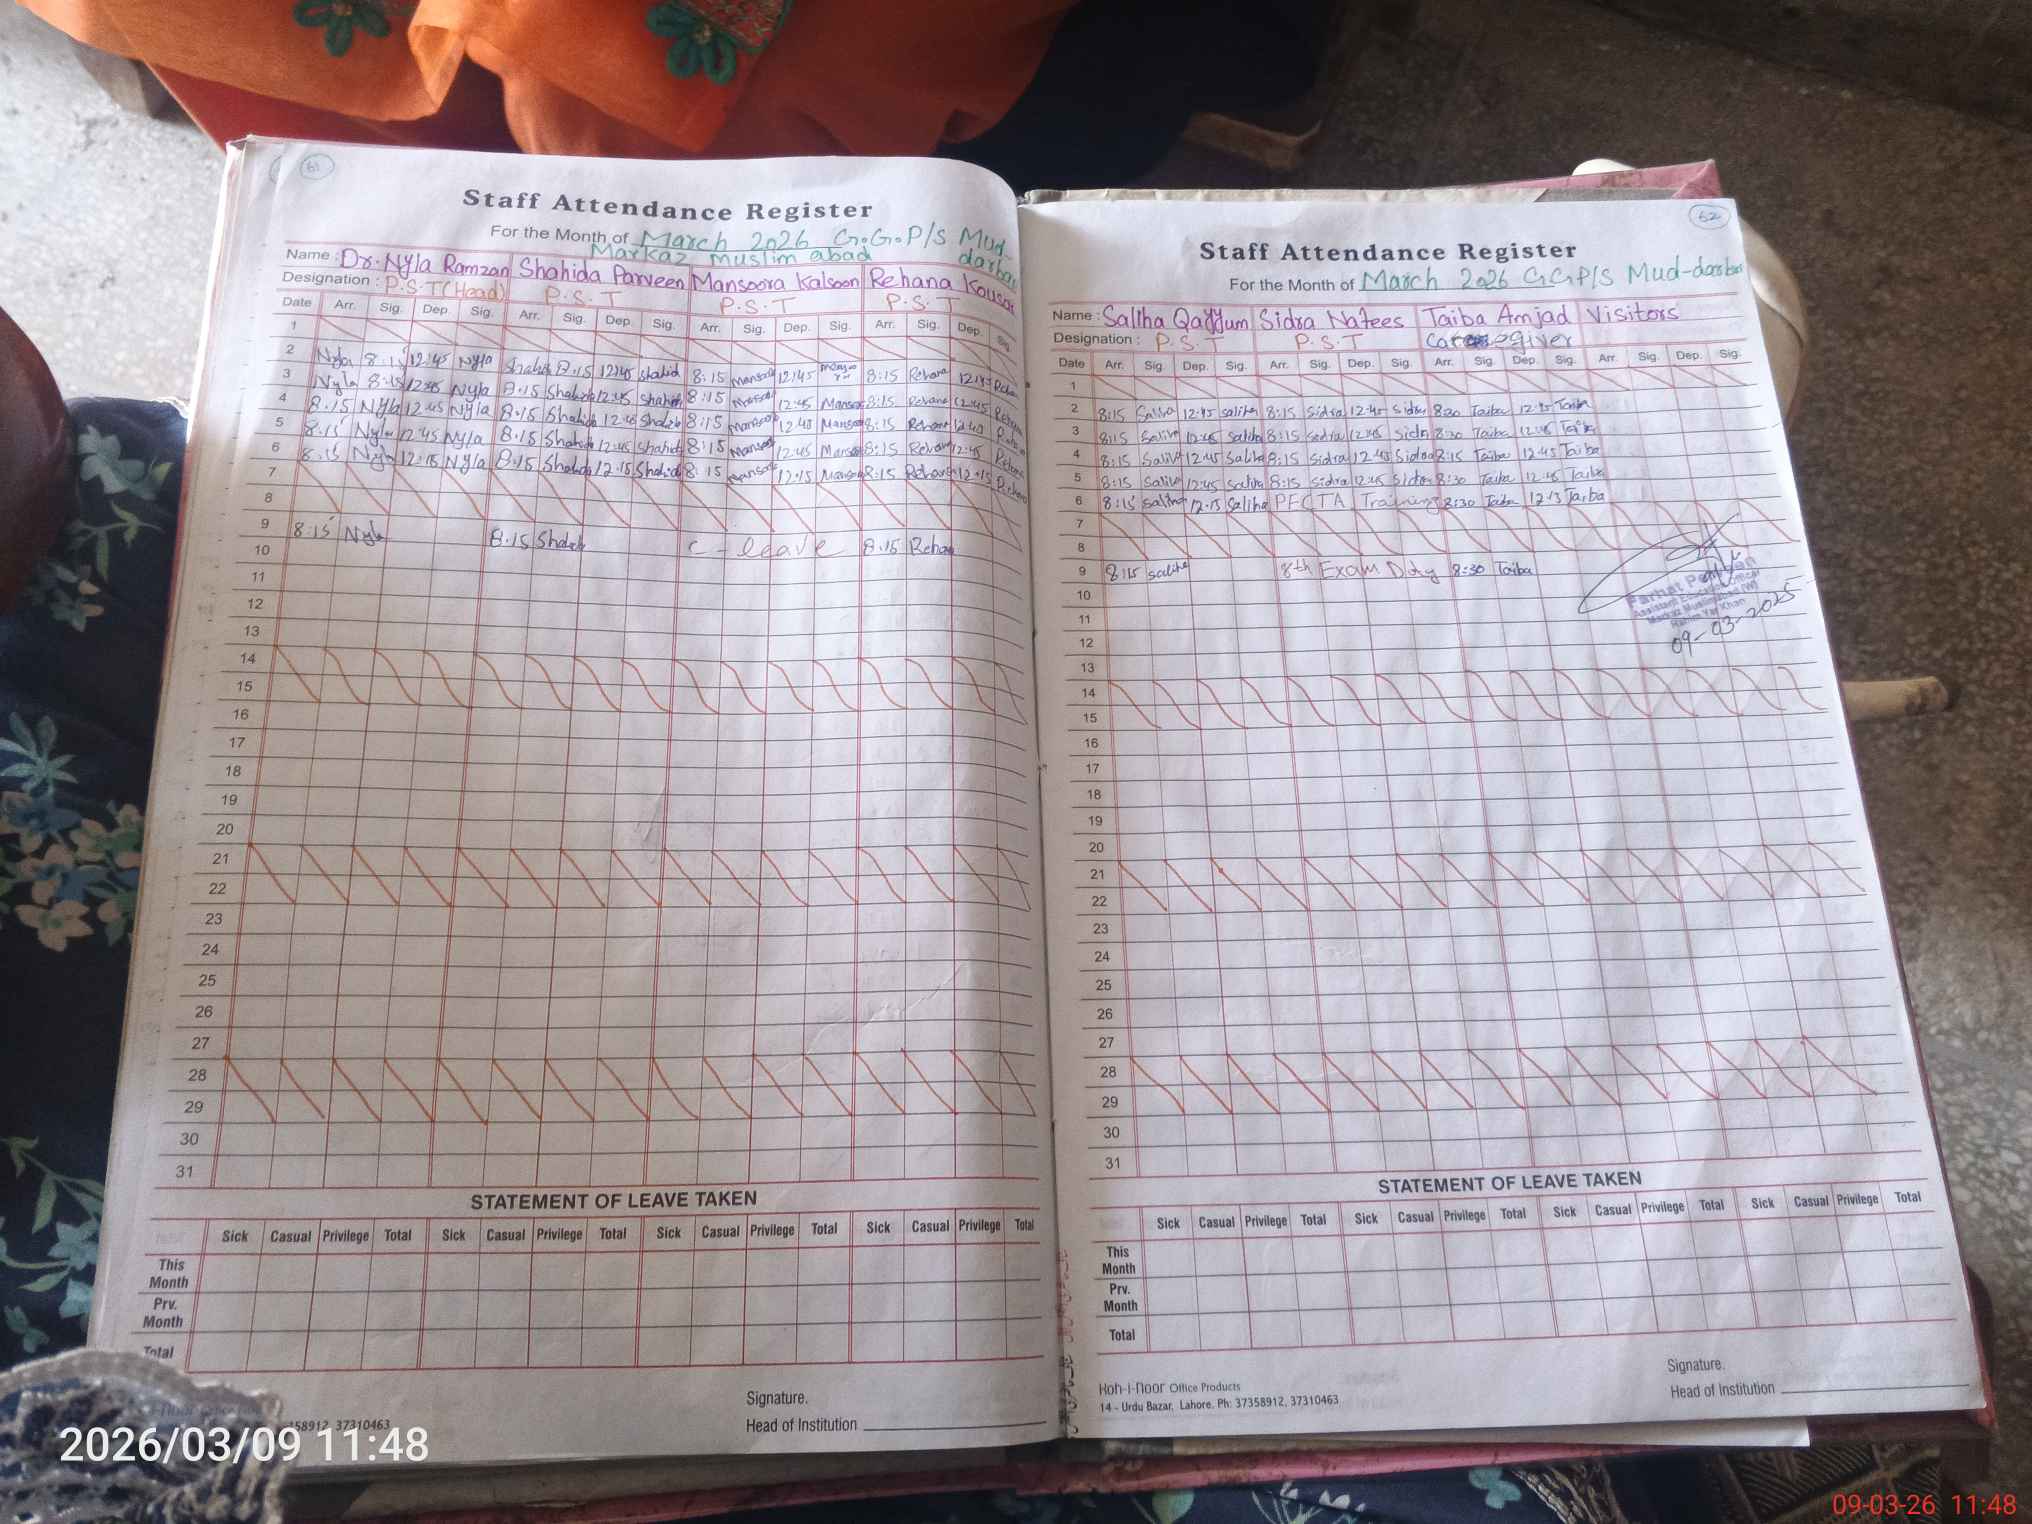 61
Staff Attendance Register
For the Month of March 2026 G.G.P/S Mud-
Markaz muslim abad darbar
Name : Dr. Nyla Ramzan Shahida Parveen Mansoora Kalsoon Rehana Kousar
Designation : P.S.T (Head) P.S.T P.S.T P.S.T
Date Arr. Sig. Dep. Sig. Arr. Sig. Dep. Sig. Arr. Sig. Dep. Sig. Arr. Sig. Dep. Sig.
1
2 Nyla 8:15 12:45 Nyla Shahid 8.15 12:45 Shahid 8:15 Mansoo 12:45 8:15 Rehana 12:45 Rehan
3 Nyla 8:15 12:45 Nyla 8.15 Shahida 12:45 Shahid 8:15 12:45 Manso 8:15 Rehana 12:45 Rehana
4 8.15 Nyla 12:45 Nyla 8.15 Shahida 12:45 Shahida 8:15 Mansoo 12:45 Manso 8:15 Rehana 12:45
5 8.15 Nyla 12:45 Nyla 8.15 Shahida 12:45 Shahid 8:15 Mansoo 12:45 Manso 8:15 Rehana 12:45 Rehana
6 8:15 Nyla 12:15 Nyla 8.15 Shahida 12.15 Shahid 8:15 Mansoo 12:15 Manso 8:15 Rehana 12:15 Rehana
7
8
9 8:15 Nyla 8.15 Shahid C - leave 8.15 Rehan
10
11
12
13
14
15
16
17
18
19
20
21
22
23
24
25
26
27
28
29
30
31
STATEMENT OF LEAVE TAKEN
Sick Casual Privilege Total Sick Casual Privilege Total Sick Casual Privilege Total Sick Casual Privilege Total
This Month
Prv. Month
Total
Signature.
Head of Institution
58912, 37310463
62
Staff Attendance Register
For the Month of March 2026 G.G.P/S Mud-darbar
Name : Saliha Qayyum Sidra Nafees Taiba Amjad Visitors
Designation : P.S.T P.S.T Caregiver
Date Arr. Sig. Dep. Sig. Arr. Sig. Dep. Sig. Arr. Sig. Dep. Sig. Arr. Sig. Dep. Sig.
1
2 8:15 Saliha 12:45 Saliha 8:15 Sidra 12:45 Sidra 8:30 Taiba 12:45 Taiba
3 8:15 Saliha 12:45 Saliha 8:15 Sidra 12:45 Sidra 8:30 Taiba 12:45 Taiba
4 8:15 Saliha 12:45 Saliha 8:15 Sidra 12:45 Sidra 8:15 Taiba 12:45 Taiba
5 8:15 Saliha 12:45 Saliha 8:15 Sidra 12:45 Sidra 8:30 Taiba 12:45 Taiba
6 8:15 Saliha 12:15 Saliha PECTA Training 8:30 Taiba 12:13 Taiba
7
8
9 8:15 Saliha 8th Exam Duty 8:30 Taiba
10
11
12
13
14
15
16
17
18
19
20
21
22
23
24
25
26
27
28
29
30
31
Farhat Perveen
Assistant Education Officer
Markaz Muslimabad (W)
Rahim Yar Khan
09-03-2025
STATEMENT OF LEAVE TAKEN
Sick Casual Privilege Total Sick Casual Privilege Total Sick Casual Privilege Total Sick Casual Privilege Total
This Month
Prv. Month
Total
Signature.
Head of Institution
Koh-i-noor Office Products
14 - Urdu Bazar, Lahore. Ph: 37358912, 37310463
2026/03/09 11:48
09-03-26 11:48